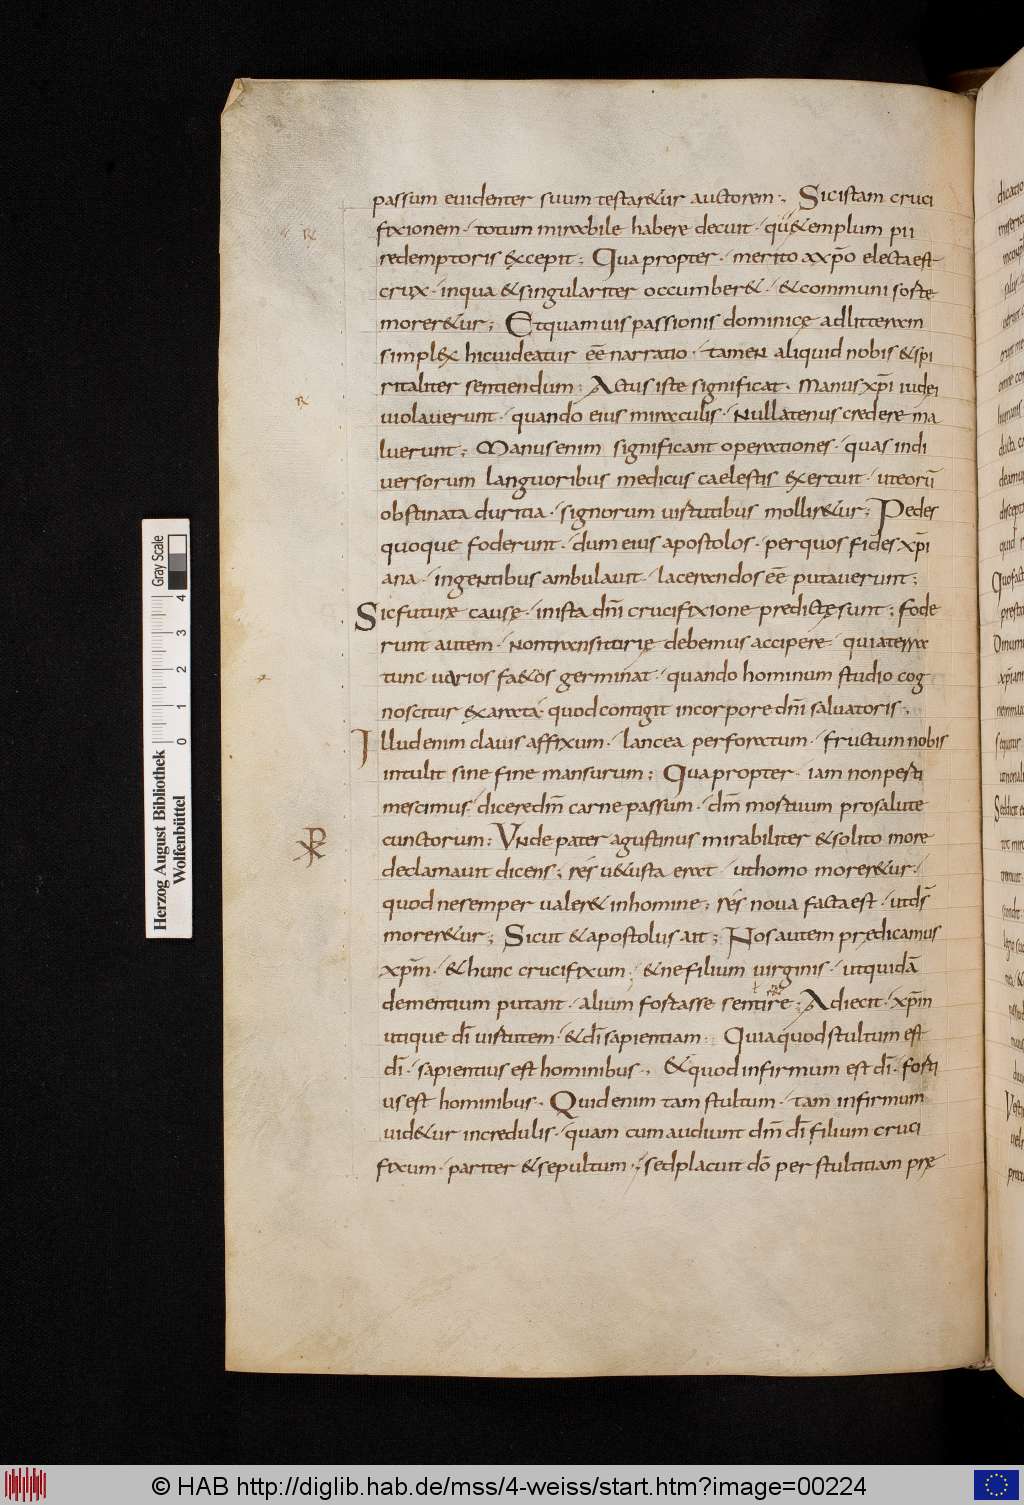 passum euidenter suum testar&ur auctorem ; Sic istam cruci
fixionem · totum mirabile habere decuit · qui & emplum pii
redemptoris excepit ; Quapropter · merito a xp̄o electa est
crux · in qua & singulariter occumber& · & communi sorte
morer&ur ; Et quamuis passionis dominicę ad litteram
simplex hic uideatur eē narratio · tamen aliquid nobis & spi
ritaliter sentiendum ; Actus iste significat · Manus xp̄i iudei
uiolauerunt · quando eius miraculis · nullatenus credere ma
luerunt ; Manus enim significant operationes · quas in di
uersorum languoribus medicus caelestis exercuit · ut eorū
obstinata duritia · signorum uirtutibus mollir&ur ; Pedes
quoque foderunt · dum eius apostolos · per quos fides xp̄i
ana · in gentibus ambulauit · lacerandos eē putauerunt ;
Sic futurę causę · in ista dn̄i crucifixione predictę sunt ; fode
runt autem · non transitorię debemus accipere · quia terra
tunc uarios fa&os germinat · quando hominum studio cog
noscitur exarata · quod contigit in corpore dn̄i saluatoris ,
Illud enim clauis affixum · lancea perforatum · fructum nobis
intulit sine fine mansurum ; Quapropter · iam non perti
mescimus · dicere dn̄m carne passum · dn̄m mortuum pro salute
cunctorum ; Vnde pater agustinus mirabiliter & solito more
declamauit dicens ; res u&usta erat · ut homo morer&ur ·
quod ne semper ualer& in homine ; res noua facta est · ut ds̄
morer&ur ; Sicut & apostolus ait ; Nos autem prędicamus
xp̄m · & hunc crucifixum ; & ne filium uirginis · ut quidā
dementium putant · alium fortasse sentire ; Adiecit · xp̄m
utique dī uirtutem · & dī sapientiam · Quia quod stultum est
dī · sapientius est hominibus , & quod infirmum est dī · forti
us est hominibus · Quid enim tam stultum · tam infirmum
uid&ur incredulis · quam cum audiunt dn̄m dī filium cruci
fixum · pariter & sepultum ; sed placuit dō per stultitiam prę
Gray Scale
0 1 2 3 4
Herzog August Bibliothek
Wolfenbüttel
© HAB http://diglib.hab.de/mss/4-weiss/start.htm?image=00224